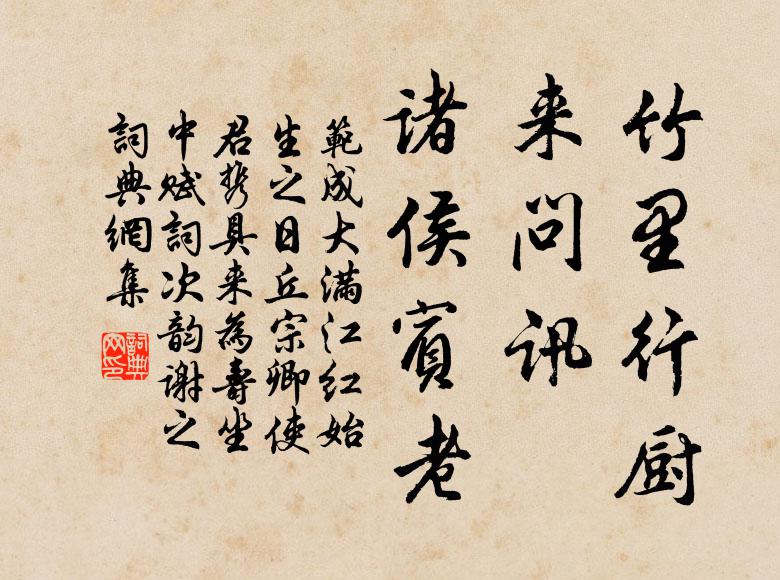 竹里行厨
来问讯
诸侯宾老
範成大满江红始
生之日丘宗卿使
君携具来為壽坐
中赋詞次韵谢之
詞典網集
詞典
网印